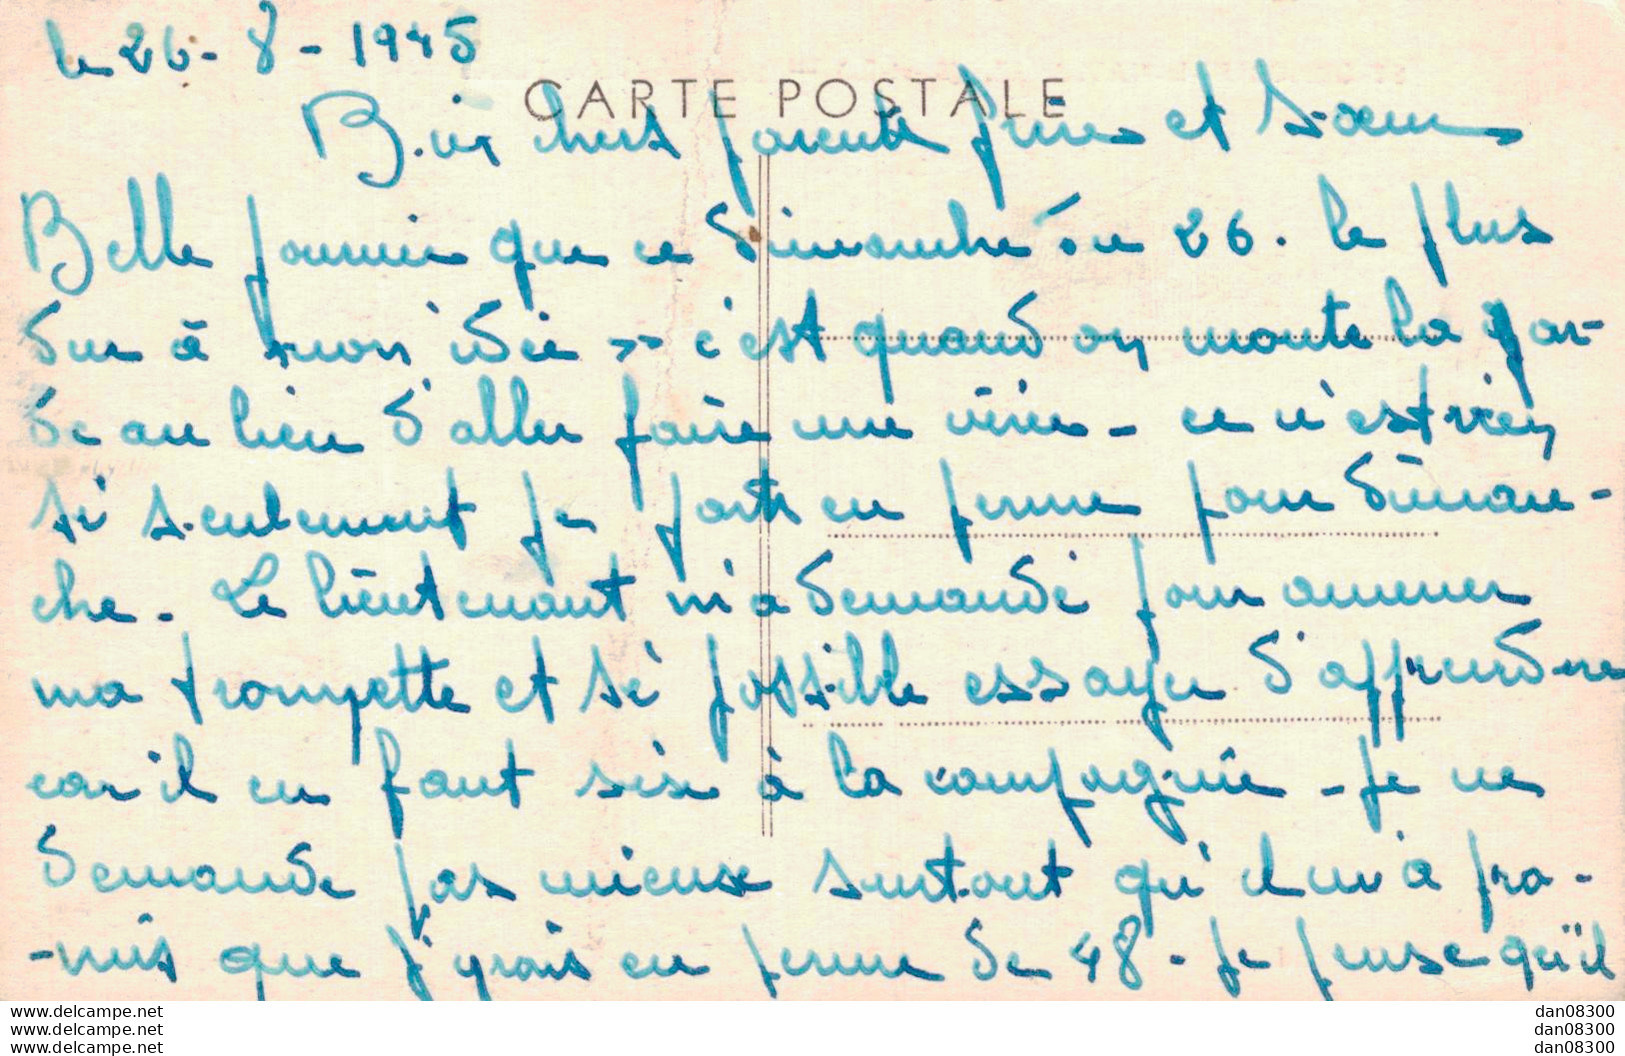 le 26-8-1945
CARTE POSTALE
Bien chers parents frères et Sœurs
Belle journée que ce dimanche ou 26. le plus
dur à mon idée c'est quand on monte la gar-
de au lieu d'aller faire une virée - ce n'est rien
si seulement je parts en perme pour diman-
che. Le lieutenant m'a demandé pour amener
ma trompette et si possible essayer d'apprendre
car il en faut six à la compagnie - Je ne
demande pas mieux surtout qu'il m'a pro-
-mis que j'yrais en perme de 48 - Je pense qu'il
www.delcampe.net
www.delcampe.net
www.delcampe.net
dan08300
dan08300
dan08300